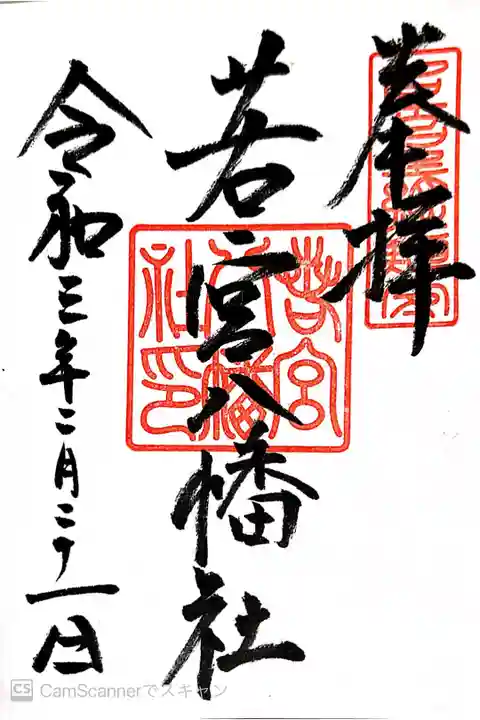 奉拝
若宮八幡社
若宮八幡社印
令和三年二月二十一日
CamScannerでスキャン